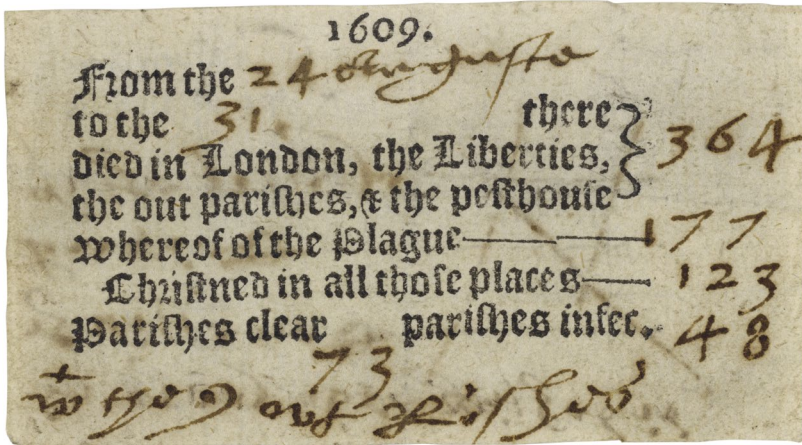 1609.
From the 24 Auguste
to the 31 there
died in London, the Liberties, 364
the out parishes, & the pesthouse
Whereof of the Plague 177
Christned in all those places 123
Parishes clear parishes infec. 48
73
wt the 9 out P'ishes